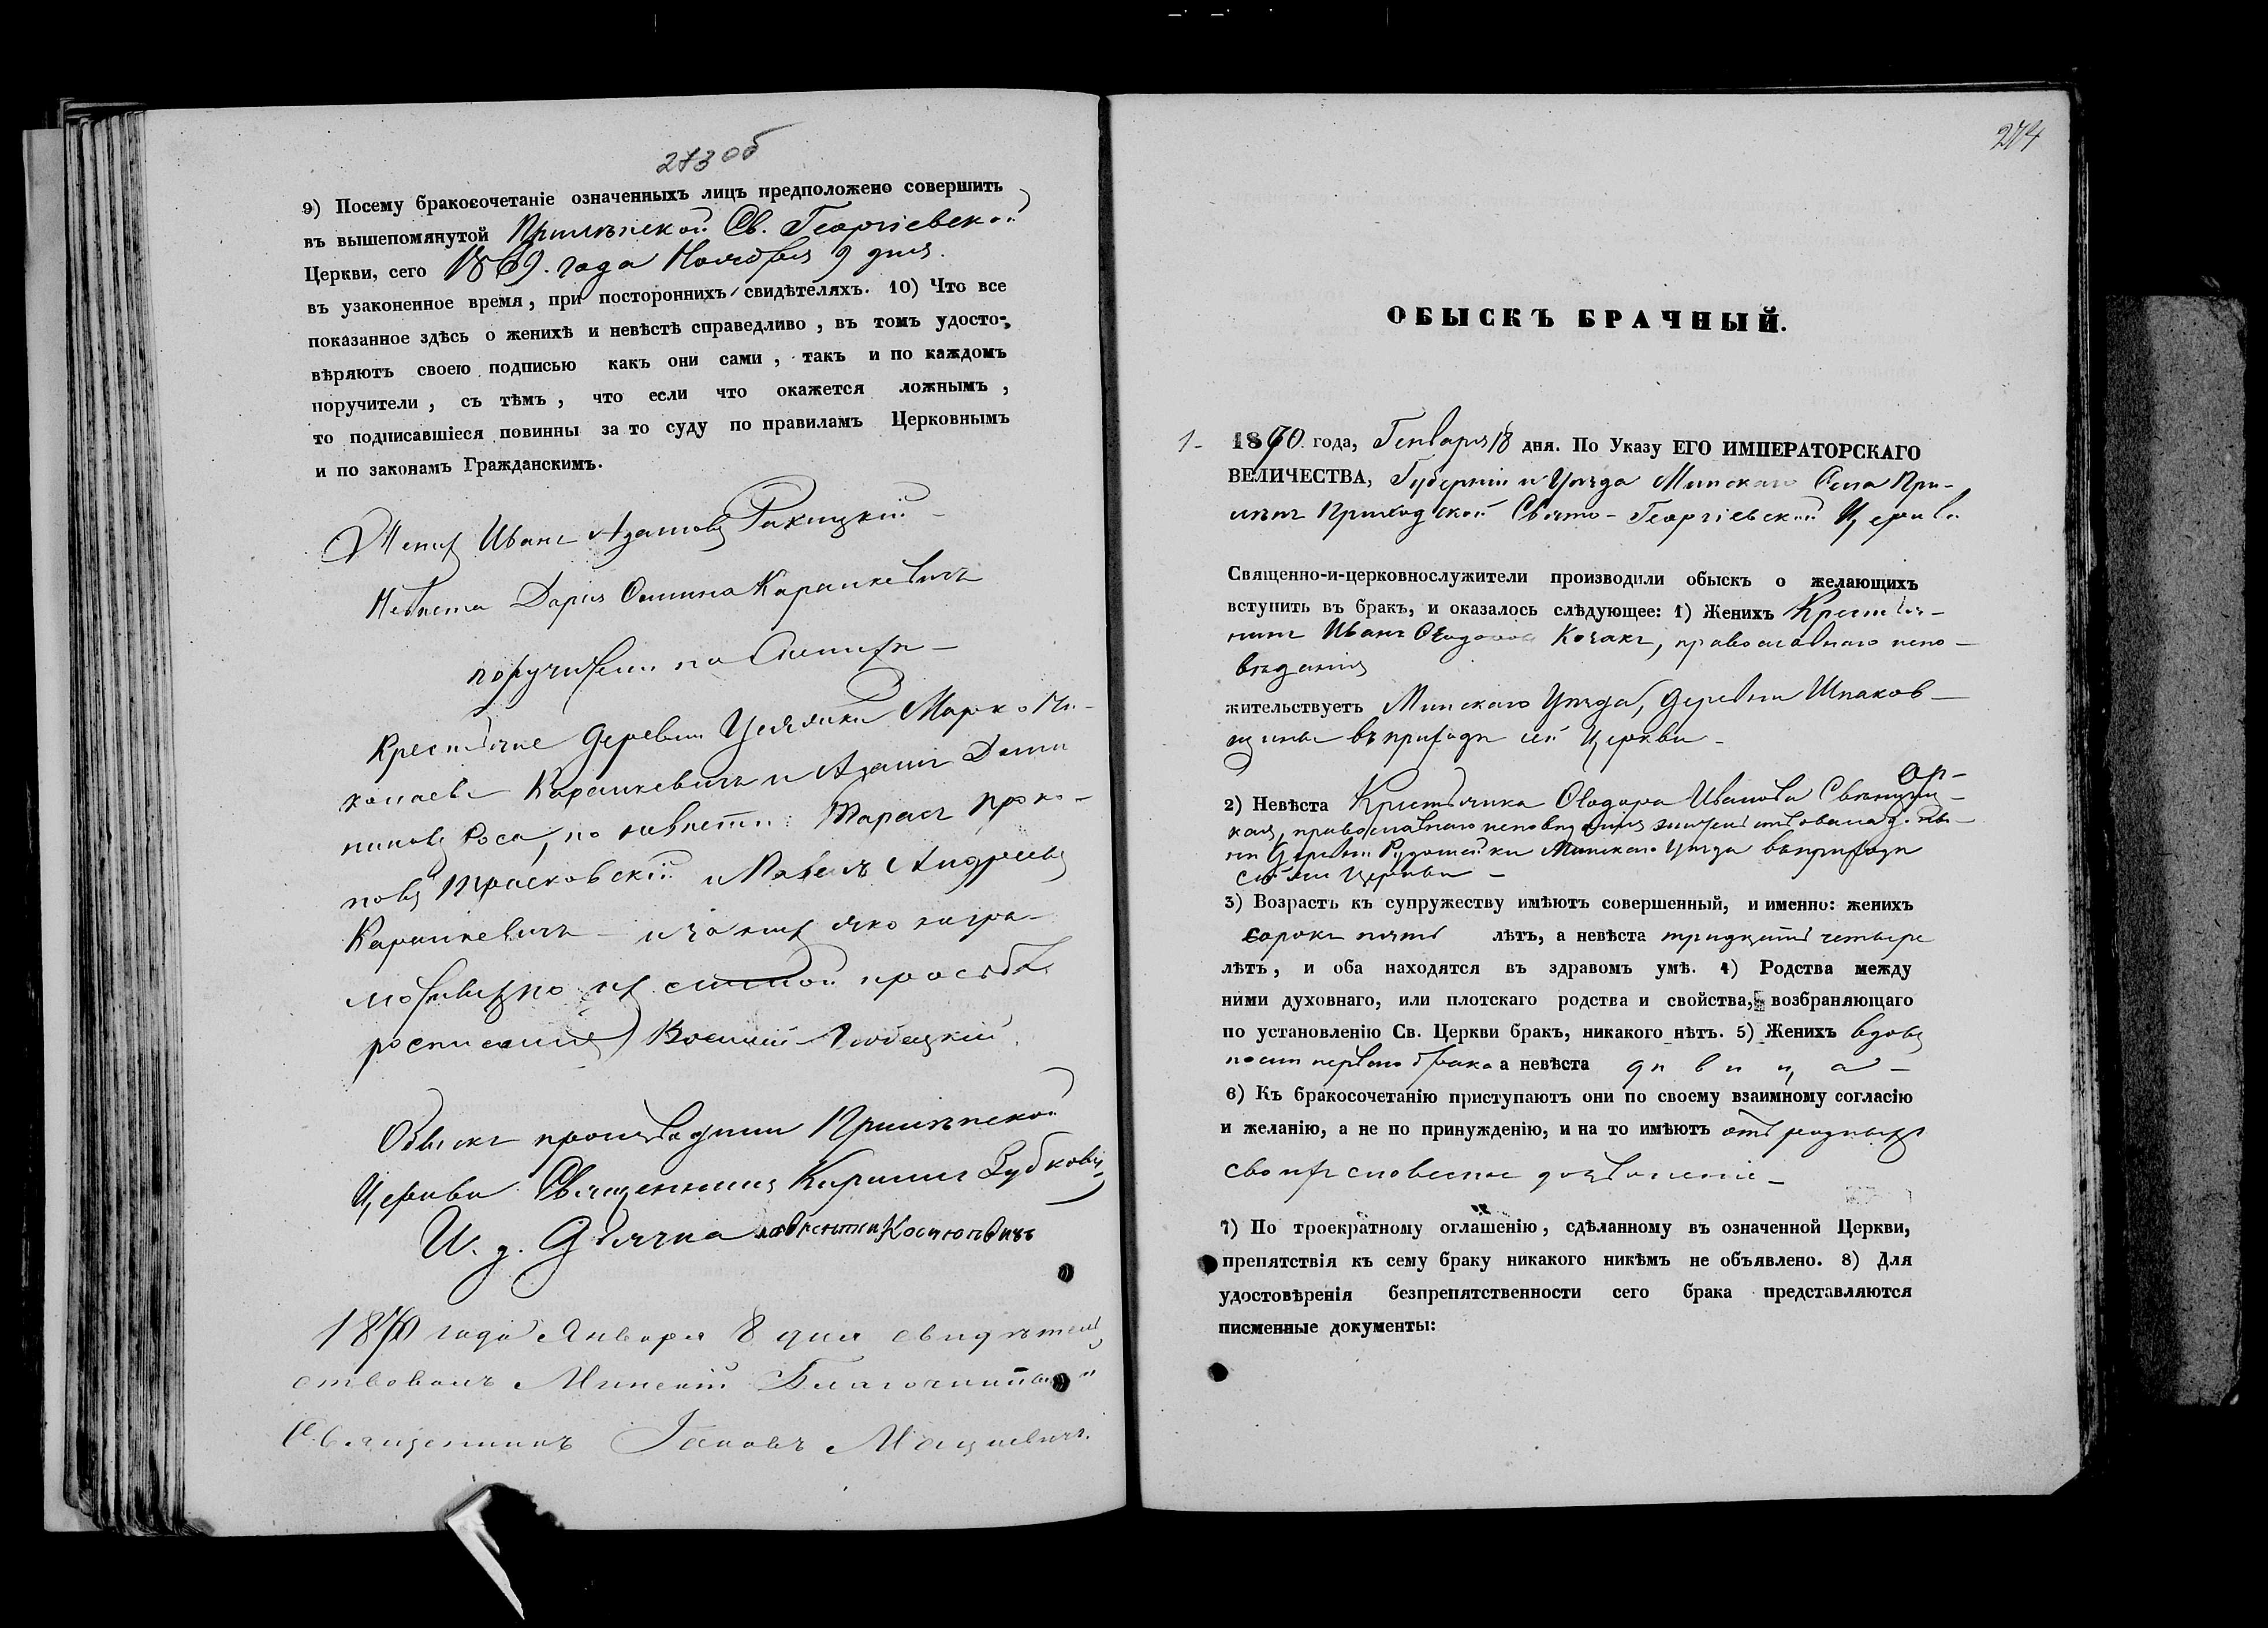 273 об
9) Посему бракосочетаніе означенныхъ лицъ предположено совершить
въ вышепомянутой Прилѣпской Св. Георгіевской
Церкви, сего 1869. года Ноября 9 дня.
въ узаконенное время, при постороннихъ свидѣтеляхъ. 10) Что все
показанное здѣсь о женихѣ и невѣстѣ справедливо, въ томъ удосто-
вѣряютъ своею подписью какъ они сами, такъ и по каждомъ
поручители, съ тѣмъ, что если что окажется ложнымъ,
то подписавшіеся повинны за то суду по правиламъ Церковнымъ
и по законамъ Гражданскимъ.
Женихъ Иванъ Адамовъ Ракицкій
Невѣста Дарія Каранкевичъ
поручители по женихѣ
Крестьяне деревни Марко Ни-
колаевъ Каранкевичъ и Адамъ
Роса, по невѣстѣ: Тарасъ Проко-
повъ и Павелъ Андреевъ
Каранкевичъ — и за нихъ яко негра-
мотныхъ по ихъ просьбѣ
росписался
Обыскъ производили Прилѣпской
Церкви Священникъ Кириллъ Зубковъ
И. д. Дьячка Костюкевичъ
1870 года Января 8 дня свидѣтель
ствовалъ Минскій Благочинный
Священникъ Іаковъ Мацкевичъ.
274
ОБЫСКЪ БРАЧНЫЙ.
1- 1870. года, Генваря 18 дня. По Указу ЕГО ИМПЕРАТОРСКАГО
ВЕЛИЧЕСТВА, Губерніи и Уѣзда Минскаго Села При-
лѣпъ Приходской Свято-Георгіевской Церкви
Священно-и-церковнослужители производили обыскъ о желающихъ
вступить въ бракъ, и оказалось слѣдующее: 1) Женихъ Крестья-
нинъ Иванъ Ѳеодоровъ Козакъ, православнаго испо-
вѣданія
жительствуетъ Минскаго Уѣзда, деревни Шпаков-
щины въ приходѣ сей Церкви
2) Невѣста Крестьянка Ѳеодора Иванова
кая, православнаго исповѣданія жительствовала до ны-
нѣ деревни Минскаго Уѣзда въ приходѣ
сей же Церкви
3) Возрастъ къ супружеству имѣютъ совершенный, и именно: женихъ
сорокъ пять лѣтъ, а невѣста тридцать четыре
лѣтъ, и оба находятся въ здравомъ умѣ. 4) Родства между
ними духовнаго, или плотскаго родства и свойства, возбраняющаго
по установленію Св. Церкви бракъ, никакого нѣтъ. 5) Женихъ вдовъ
послѣ перваго брака а невѣста дѣвица
6) Къ бракосочетанію приступаютъ они по своему взаимному согласію
и желанію, а не по принужденію, и на то имѣютъ отъ родныхъ
своихъ словесное дозволеніе
7) По троекратному оглашенію, сдѣланному въ означенной Церкви,
препятствія къ сему браку никакого никѣмъ не объявлено. 8) Для
удостовѣренія безпрепятственности сего брака представляются
писменные документы: